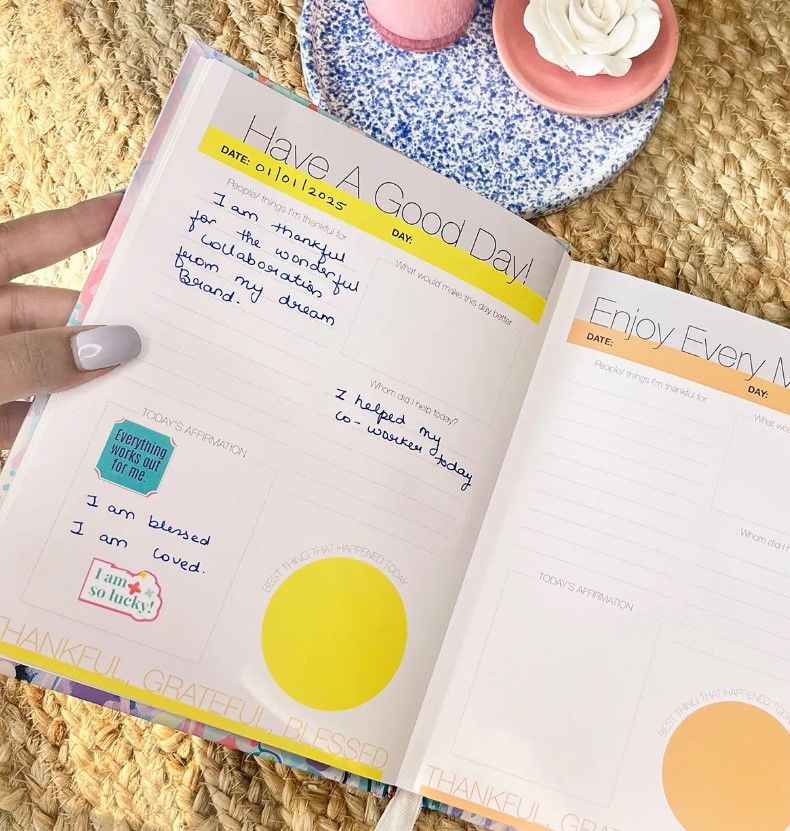 Have A Good Day!
DATE: 01/01/2025
DAY:
People/ things I'm thankful for
I am thankful
for the wonderful
collaboration
from my dream
Brand.
What would make this day better
Whom did I help today?
I helped my
co-worker today
TODAY'S AFFIRMATION
Everything
works out
for me.
I am blessed
I am loved.
I am
so lucky!
BEST THING THAT HAPPENED TODAY
THANKFUL, GRATEFUL, BLESSED
Enjoy Every M
DATE:
DAY:
People/ things I'm thankful for
What wou
Whom did I h
TODAY'S AFFIRMATION
BEST THING THAT HAPPENED TODAY
THANKFUL, GRAT